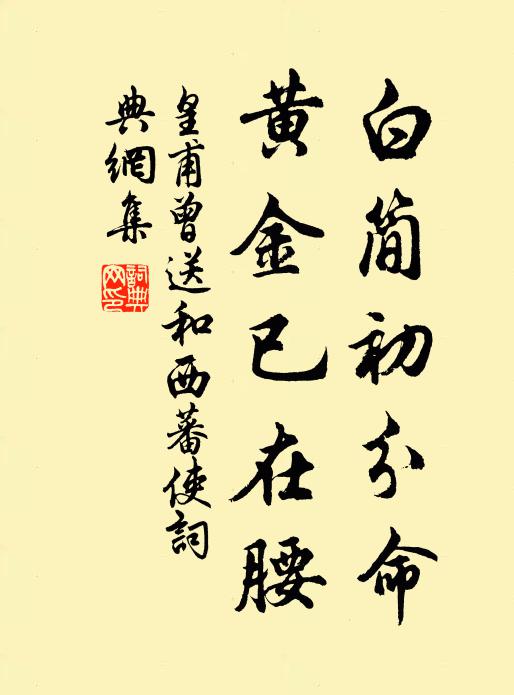 白简初分命
黄金已在腰
皇甫曾送和西蕃使詞
典網集
詞典
网印